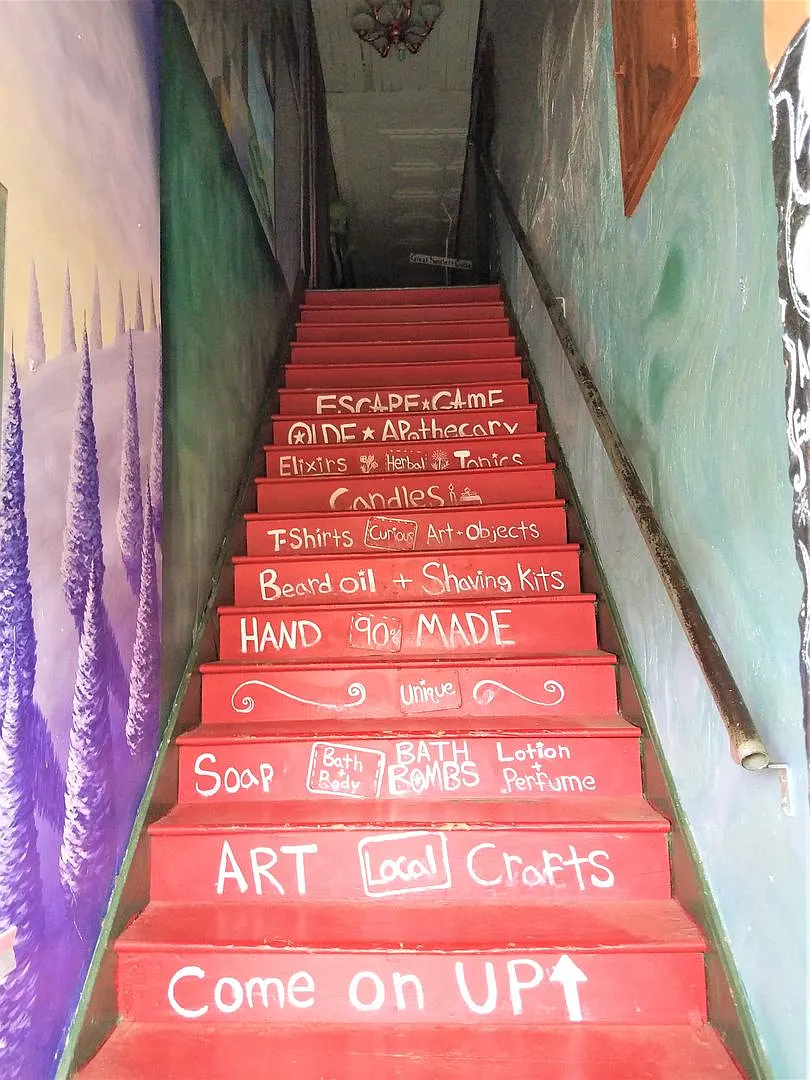 ESCAPE★GAME
OLDE ★ APOthecary
Elixirs Herbal Tonics
Candles
T-Shirts Curious Art+Objects
Beard oil + Shaving Kits
HAND 90% MADE
Unique
Soap Bath + Body BATH BOMBS Lotion + Perfume
ART Local Crafts
Come on UP↑